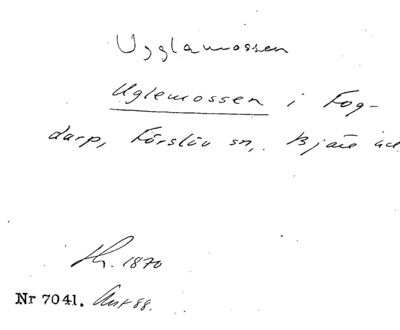 Ugglamossen
Uglemossen i Fog-
darp, Förslöv sn, Bjäre
1870
Nr 7041.